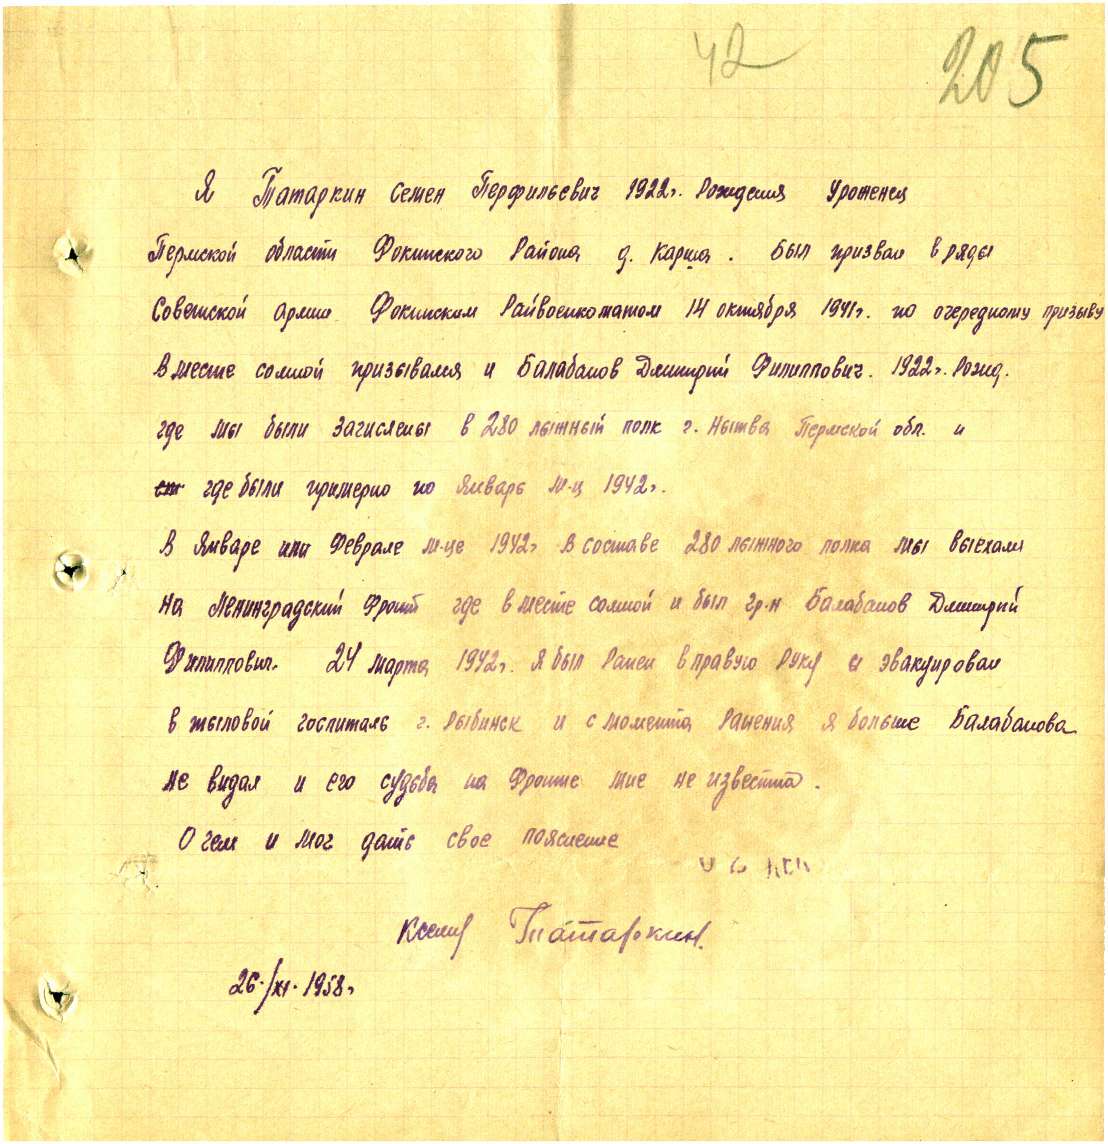 42
205
Я Татаркин Семен Перфильевич 1922г. Рождения Уроженец
Пермской области Фокинского Района д. Карша. Был призван в ряды
Советской армии Фокинским Райвоенкоматом 14 октября 1941г. по очередному призыву
в месте сомной призывался и Балабанов Дмитрий Филиппович. 1922г. Рожд.
где мы были зачислены в 280 лыжный полк г. Нытва Пермской обл. и
где были примерно по Январь м-ц 1942г.
В Январе или Феврале м-це 1942г в составе 280 лыжного полка мы выехали
на Ленинградский Фронт где в месте сомной и был гр-н Балабанов Дмитрий
Филиппович. 24 марта 1942г. я был Ранен в правую Руку и эвакуирован
в тыловой госпиталь г. Рыбинск и с момента Ранения я больше Балабанова
не видал и его судьба на Фронте мне не известна.
О чем и мог дать свое пояснение
К сему Татаркин.
26/XI. 1958г